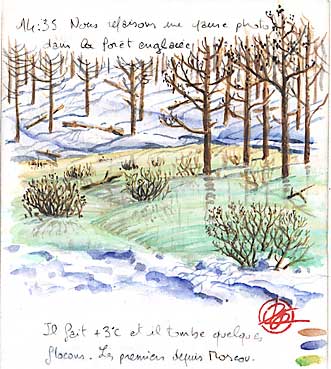 14:35 Nous refaisons une pause photo
dans la forêt englacée
Il fait +3°C et il tombe quelques
flocons. Les premiers depuis Moscou.